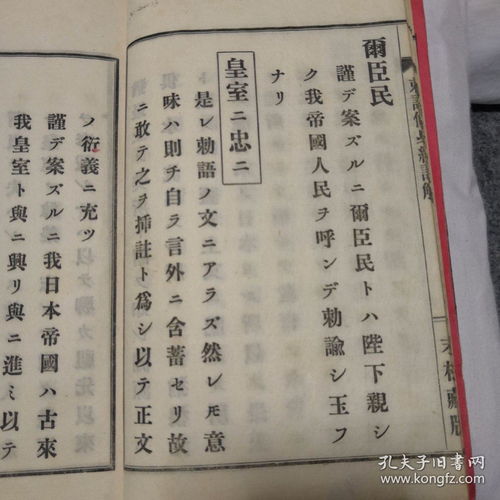 爾臣民
謹デ案ズルニ爾臣民トハ陛下親シ
ク我帝國人民ヲ呼ンデ勅諭シ玉フ
ナリ
皇室ニ忠ニ
是レ勅語ノ文ニアラズ然レモ意
味ハ則チ自ラ言外ニ含蓄セリ故
ニ敢テ之ヲ挿註ト爲シ以テ正文
ノ衍義ニ充ツ
謹デ案ズルニ我日本帝國ハ古來
我皇室ト與ニ興リ與ニ進ミ以テ
孔夫子旧书网
www.kongfz.com